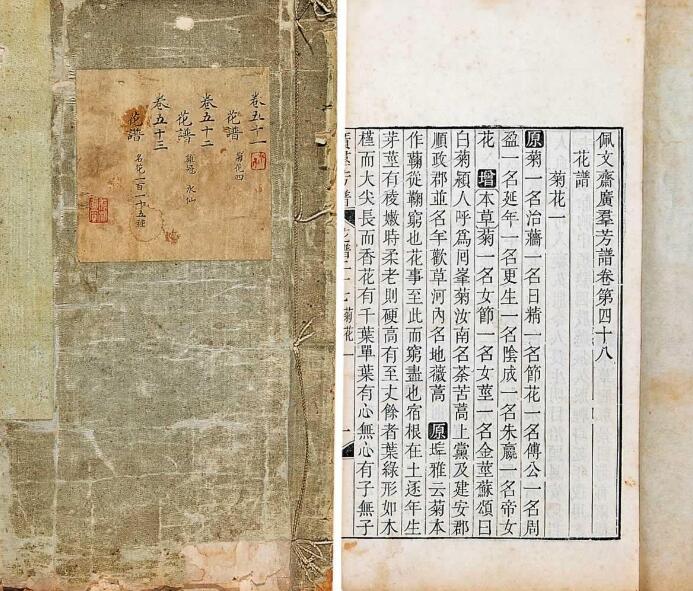 卷五十一
花譜 菊花四
卷五十二
花譜 雞冠 水仙
卷五十三
花譜 名花一百一十五種
佩文齋廣羣芳譜卷第四十八
花譜
菊花一
原菊一名治蘠一名日精一名節花一名傅公一名周
盈一名延年一名更生一名陰成一名朱嬴一名帝女
花 增本草菊一名女節一名女莖一名金莖蘇頌曰
白菊潁人呼爲囘峯菊汝南名荼苦蒿上黨及建安郡
順政郡並名羊歡草河內名地薇蒿 原埤雅云菊本
作蘜從鞠窮也花事至此而窮盡也宿根在土逐年生
芽莖有棱嫩時柔老則硬高有至丈餘者葉綠形如木
槿而大尖長而香花有千葉單葉有心無心有子無子
菊花一